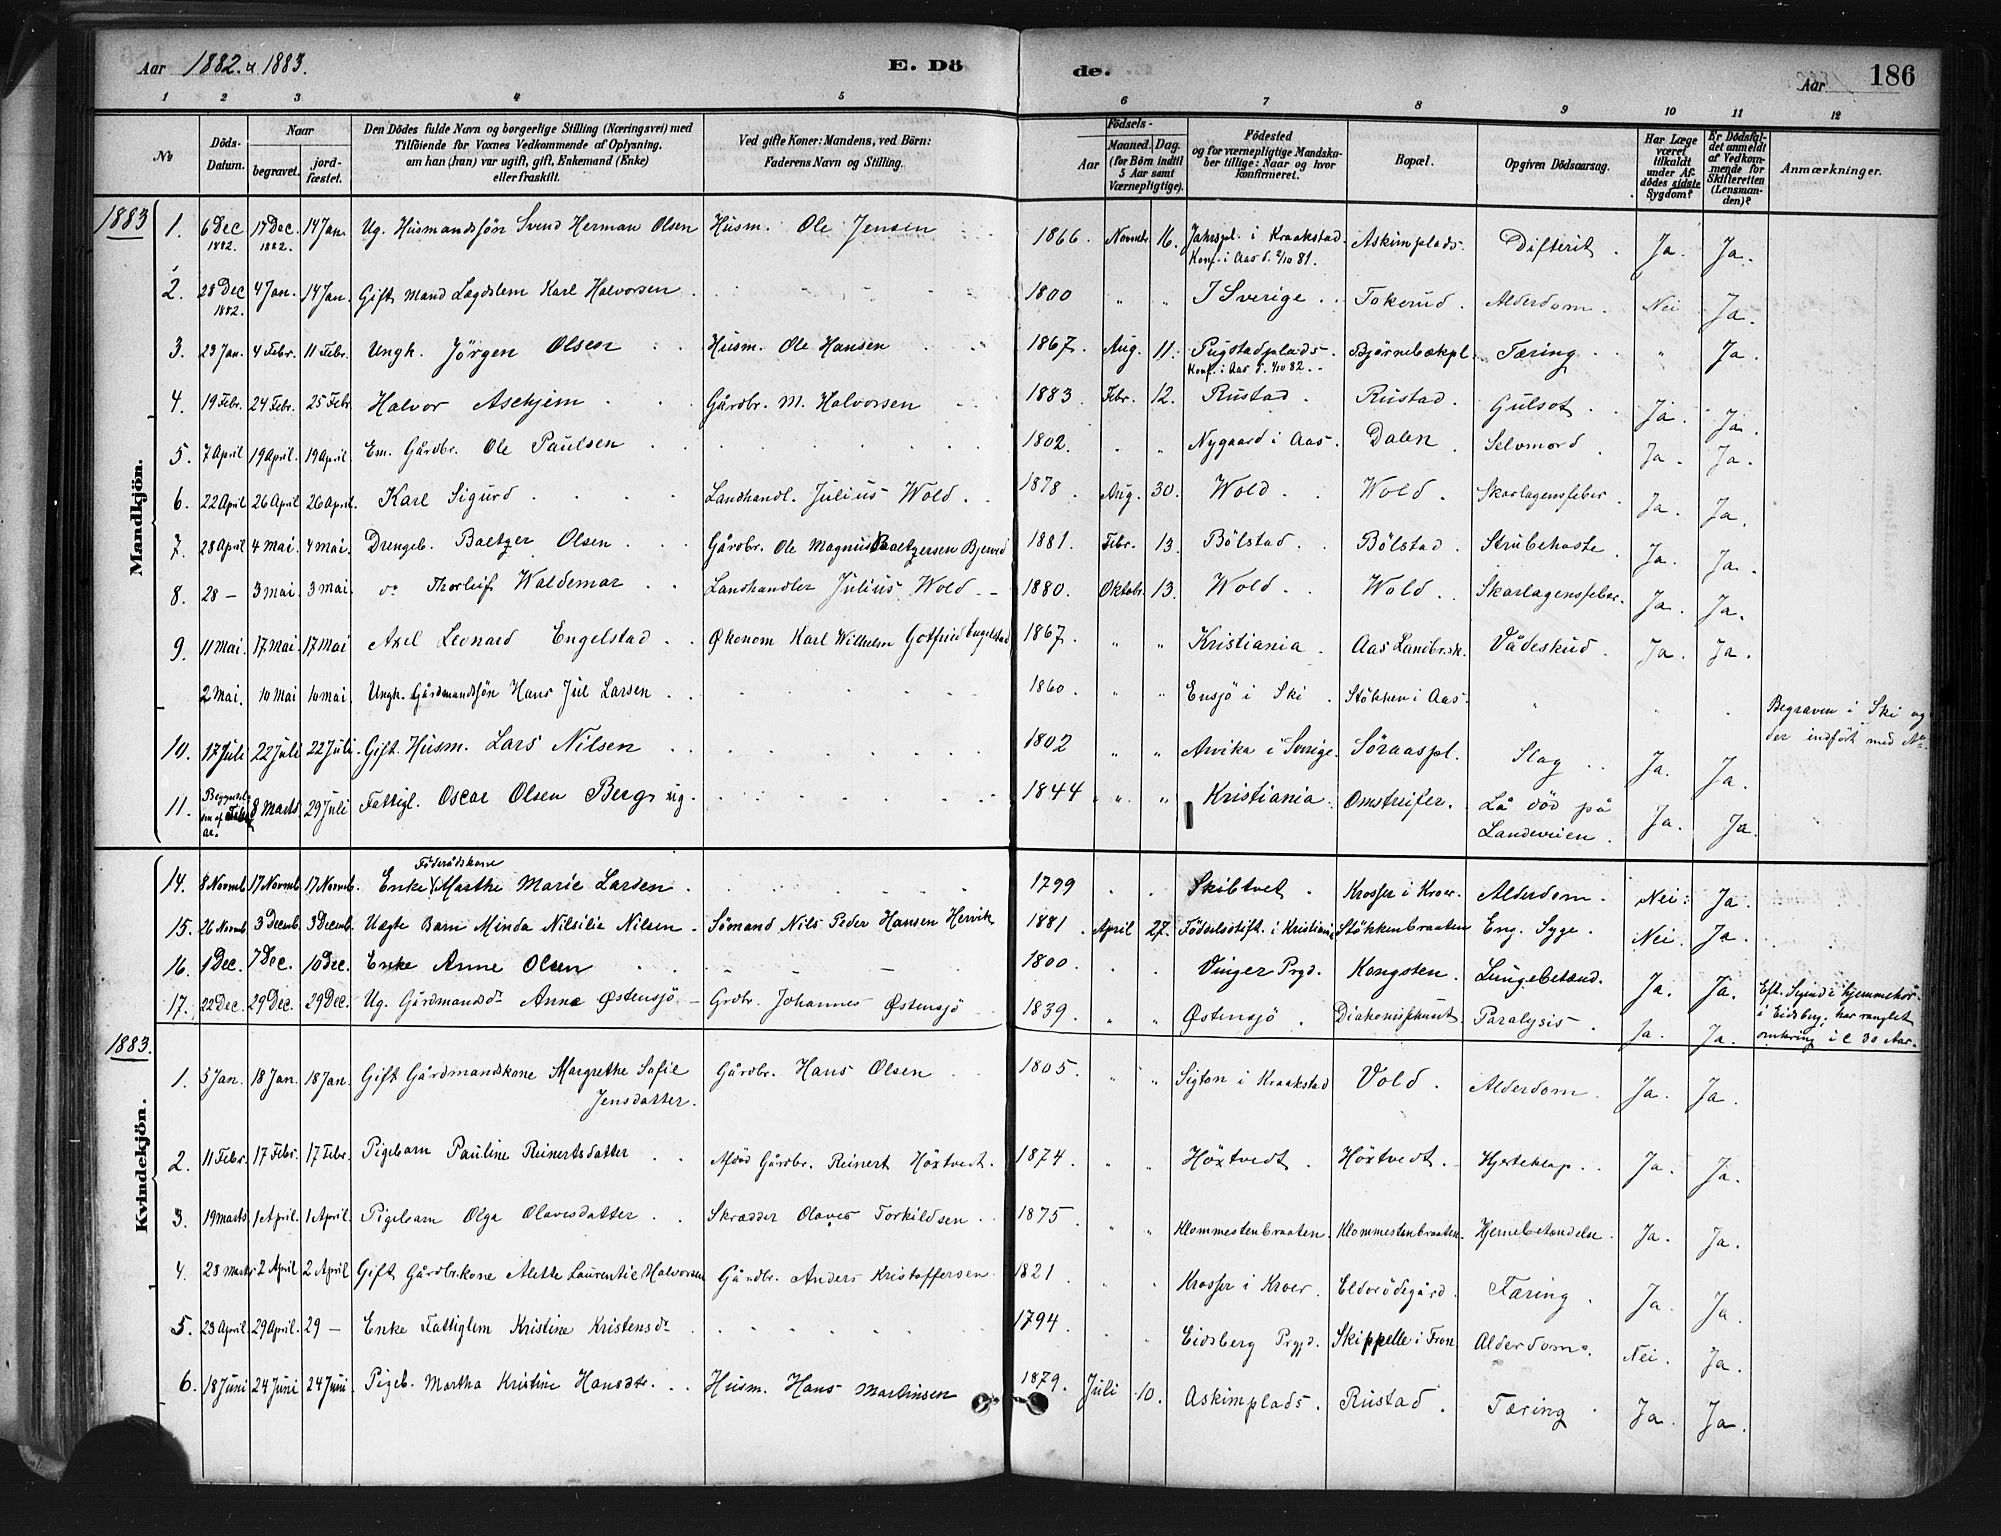 Aar 1882. & 1883. E. Dö de. Aar 186
1 2 3 4 5 6 7 8 9 10 11 12
No Döds-Datum. Naar begravet. jord-fæstet. Den Dödes fulde Navn og borgerlige Stilling (Næringsvei) med Tilföiende for Voxnes Vedkommende af Oplysning, om han (hun) var ugift, gift, Enkemand (Enke) eller fraskilt. Ved gifte Koner: Mandens, ved Börn: Faderens Navn og Stilling. Födsels- Aar Maaned. Dag. (for Börn indtil 5 Aar samt Værnepligtige). Födested og for værnepligtige Mandskaber tillige: Naar og hvor konfirmeret. Bopæl. Opgiven Dödsaarsag. Har Læge været tilkaldt under Afdödes sidste Sygdom? Er Dödsfaldet anmeldt af Vedkommende for Skifteretten (Lensmanden)? Anmærkninger.
1883
Mandkjön.
1. 6 Dec 1882. 17 Dec. 1882. 14 Jan. Ug. Husmandssön Svend Herman Olsen Husm. Ole Jensen 1866 Novmbr. 16. i Kraakstad Konf. i Aas d. 2/10 81. Askimplads. Difterit. Ja. Ja.
2. 28 Dec 1882. 4 Jan. 14 Jan. Gift Mand Lægdslem Karl Halvorsen 1800 " " I Sverige Tokerud. Alderdom. Nei Ja.
3. 23 Jan. 4 Febr. 11 Febr. Ungk. Jörgen Olsen Husm. Ole Hansen 1867. Aug. 11. Pugstadplads. Konf. i Aas 1/10 82. Björnebækpl. Tæring " Ja.
4. 19 Febr. 24 Febr. 25 Febr Halvor Askjem Gårdbr. M. Halvorsen 1883 Febr. 12. Rustad. Rustad. Gulsot. Ja. Ja.
5. 7 April 19 April. 19 April. Em. Gårdbr. Ole Paulsen 1802. " " Nygaard i Aas. Dalen Selvmord Ja. Ja.
6. 22 April 26 April 26 April. Karl Sigurd Landhandl. Julius Wold. 1878. Aug. 30. Wold. Wold. Skarlagensfeber Ja. Ja.
7. 28 April 4 Mai. 4 Mai. Drengeb. Baltzer Olsen Gårdbr. Ole Magnus Baltzersen Bjerud 1881. Febr. 13. Bölstad. Bölstad. Strubehoste. Ja. Ja.
8. 28 — 3 Mai. 3 Mai. do Thorleif Waldemar Landhandler Julius Wold 1880. Oktobr. 13. Wold. Wold. Skarlagensfeber. Ja. Ja.
9. 11 Mai. 17 Mai. 17 Mai Axel Leonard Engelstad Økonom Karl Wilhelm Gotfried Engelstad 1867. " " Kristiania. Aas Landbr.sk. Vådeskud. Ja. Ja.
2 Mai. 10 Mai 10 Mai Ungk. Gårdmandssön Hans Jul Larsen 1860. " " Ensjö i Ski Stökken i Aas. " Begraven i Ski og der indfört med No
10. 17 Juli 22 Juli 22 Juli. Gift Husm. Lars Nilsen 1802 " " Arvika i Sverige. Söraaspl. Slag Ja. Ja.
11. Begyndelsen af Febr. 8 Marts. 29 Juli Fattigl. Oscar Olsen Berg ug. 1844 " " Kristiania. Omstreifer. Lå död på Landeveien. Ja. Ja.
Kvindekjön.
14. 8 Novmb. 17 Novmb. 17 Novmb. Enke Föderådskone Marthe Marie Larsen. 1799 Skibtvet. Krosser i Kroer. Alderdom. Nei. Ja.
15. 26 Novmb 3 Decemb. 3 Decemb. Uægte Barn Minda Nilsilie Nilsen. Sömand Nils Peder Hansen Hervik 1881. April 27. Födselsstift. i Kristiania Stökkenbraaten Eng. Syge. Nei. Ja.
16. 1 Dec. 7 Dec. 10 Dec. Enke Anne Olsen 1800. Vinger Prgd. Kongsten. Lungebetænd. Ja. Ja.
17. 22 Dec. 29 Dec. 29 Dec. Ug. Gårdmandsdr. Anne Østensjö Grdbr. Johannes Østensjö 1839. Østensjö. Paralysis. Ja. Ja. i Eidsberg, har ranglet omkring i c 30 Aar.
1883.
1. 5 Jan. 18 Jan. 18 Jan. Gift Gårdmandskone Margrethe Sofie Jensdatter. Gårdbr. Hans Olsen 1805. " " Sigton i Kraakstad Vold. Alderdom. Ja. Ja.
2. 11 Febr. 17 Febr. 17 Febr. Pigebarn Pauline Reinertsdatter Afdöd Gårdbr. Reinert Höxtvedt. 1874. " " Höxtvedt. Höxtvedt. Ja. Ja.
3. 19 Marts 1 April. 1 April. Pigebarn Olga Olavesdatter Skrædder Olaves Torkildsen 1875 " " Klommestenbraaten. Klommestenbraaten. Hjernebetændelse. Ja. Ja.
4. 28 Marts 2 April 2 April Gift Gårdbr.kone Alette Laurentie Halvorsen Gårdbr. Anders Kristoffersen. 1821. Krosser i Kroer. Eldorödegård. Tæring. Ja. Ja.
5. 23 April. 29 April. 29 — Enke Fattiglem Kristine Kristensdr 1794. Eidsberg Prgjd. Skippelle i Fron Alderdom. Nei. Ja.
6. 18 Juni 24 Juni 24 Juni. Pigeb. Martha Kristine Hansdtr. Husm. Hans Martinsen 1879. Juli 10. Askimplads. Rustad. Tæring Ja. Ja.